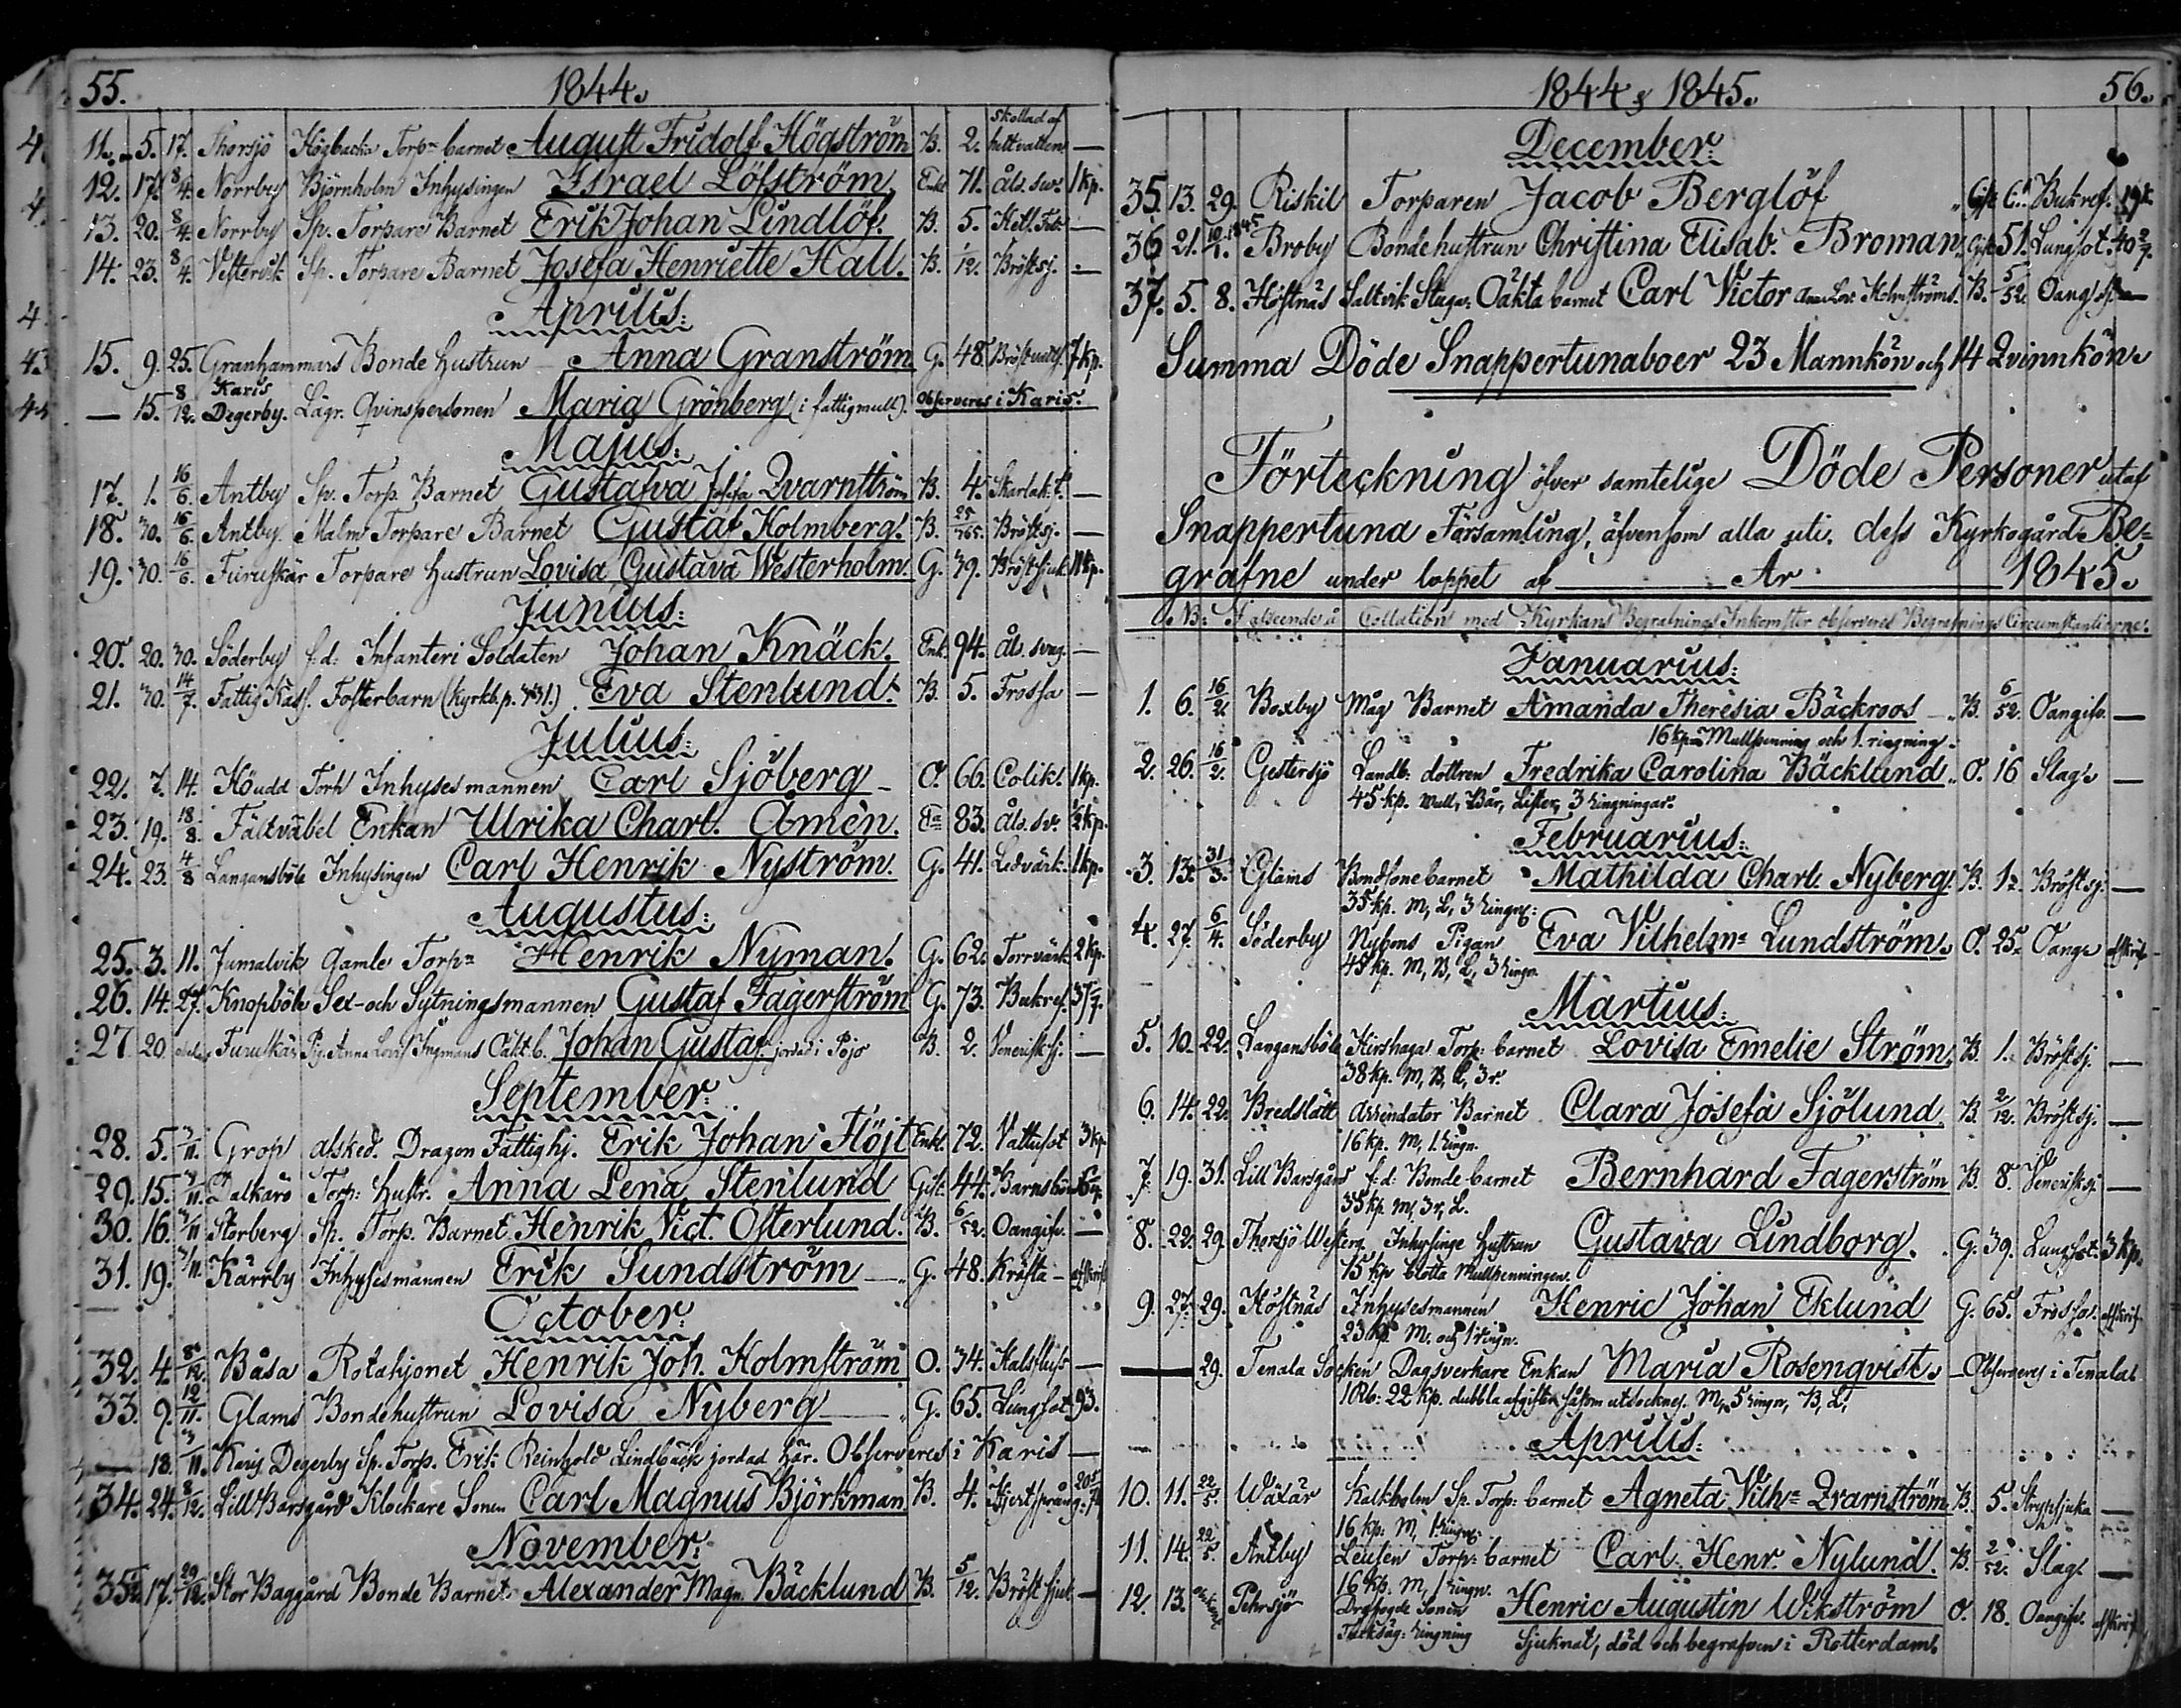 55. 1844.
11. 5. 17. Thorsjö Högbacka Torp. barnet August Fridolf Högström B. 2. skollad af hett vatten —
12. 17. 8/4. Norrby Björnholm Inhysingen Israel Löfström. Enkl. 71. Åld. sv. 1 kp.
13. 20. 8/4. Norrby Sp. Torpare Barnet Erik Johan Lindlöf. B. 5. Hetl. Feb. —
14. 23. 8/4. Vestervik Sp. Torpare Barnet Josefa Henriette Hall. B. 1/12. Bröstsj. —
Aprilis:
15. 9. 25. Granhammars Bonde Hustrun Anna Granström G. 48. 7 kp.
— 15. 8/12. Karis Degerby. Lägr. Qvinspersonen Maria Grönberg (i fattigmull). Observeres i Karis.
Majus:
17. 1. 16/6. Antby Sp. Torp. Barnet Gustafva Josefa Qvarnström B. 4. Skarlak. f. —
18. 30. 16/6. Antby. Malm Torpare Barnet Gustaf Holmberg. B. 25/365. Bröstsj. —
19. 30. 16/6. Furuskär Torpare Hustrun Lovisa Gustava Westerholm. G. 39. Bröstsjuk
Junius:
20. 20. 30. Söderby f.d. Infanteri Soldaten Johan Knäck. Enk. 94. Åld. svag. —
21. 30. 14/7. Fattig Kass. Fosterbarn (kyrkb. p. 431.) Eva Stenlund. B. 5. Frossa —
Julius:
22. 7. 14. Höudd Torp Inhyses mannen Carl Sjöberg — O. 66. Colik. 1 kp.
23. 19. 18/8. Fältväbel Enkan Ulrika Charl. Amèn. Ea 83. Åld. sv. 2 kp.
24. 23. 4/8 Langansböle Inhysingen Carl Henrik Nyström. G. 41. Ledvärk. 1 kp.
Augustus:
25. 3. 11. Jumalvik Gamle Torp. Henrik Nyman. G. 62. Torrvärk. 2 kp.
26. 14. 27. Knopböle Sex- och Sytningsmannen Gustaf Fagerström G. 73. Bukref.
27 20. Furuskär Pig. Anna Lovis. Ingmans Oäkt. b. Johan Gustaf jordad i Pojo B. 2. Venerisk sj. —
September:
28. 5. 3/11. Grop afsked. Dragon Fattighj. Erik Johan Höjt Enkl. 72. Vattusot 3 kp
29. 15. 3/11. Dalkärö Torp. Hustr. Anna Lena Stenlund Gift. 44. Barnsbörd
30. 16. 3/11 Storberg Sp. Torp. Barnet Henrik Vict. Österlund. B. 6/52. Oangifv. —
31. 19. 3/11. Kärrby Inhysesmannen Erik Sundström — G. 48. Kräfta — afskrif
October:
32. 4. 8/12. Båsa Rotehjonet Henrik Joh. Holmström O. 34. Halsfluss —
33. 9. 12/11. Glams Bondehustrun Lovisa Nyberg — G. 65. Lungsot 93.
— 18. 3/11. Karis Degerby Sp. Torp. Erik Reinhold Lindbäck jordad här. Observeres i Karis —
34. 24. 8/12. Lill Barsgård Klockare Sonen Carl Magnus Björkman B. 4.
November:
35½. 17. 29/12. Stor Baggård Bonde Barnet Alexander Magn. Bäcklund B. 5/12. Bröstsjuk —
1844 & 1845. 56.
December:
35. 13. 29. Riskil Torparen Jacob Berglöf Gift 6. Bukref. 19 k.
36 21. 10/1. 1845 Broby Bondehustrun Christina Elisab. Broman Gift 51. Lungsot. 40 2/7.
37. 5. 8. Höstnäs Saltvik Stugu. Oäkta barnet Carl Victor Anna Lov. Holmströms. B. 5/52. Oangifv. —
Summa Döde Snappertunaboer 23 Mannkön och 14 Qvinnkön.
Förteckning öfver samtelige Döde Personer utaf
Snappertuna Församling, äfvensom alla uti dess Kyrkogård Be=
grafne under loppet af — År — 1845.
NB: I afseende å Collation med Kyrkans Begrafnings Inkomster observeres Begrafnings Circumstantierne.
Januarius:
1. 6. 16/2. Boxby Måg Barnet Amanda Theresia Bäckroos — B. 6/52. Oangifv. —
16 kp. Mullpenning och 1. ringning.
2. 26. 16/2. Gestersjö Landb. dottren Fredrika Carolina Bäcklund O. 16 Slag. —
45 kp. Mull, Bår, Lifter, 3 ringningar.
Februarius:
3. 13. 31/3. Glams Bondsone barnet Mathilda Charl. Nyberg. B. 1. Bröstsj. —
35 kp. M, L, 3 ringn.
4. 27. 6/4. Söderby Nybons Pigan Eva Vilhelm. Lundström. O. 25. Oang. afskrif
45 kp. M, B, L, 3 ringn.
Martius:
5. 10. 22. Langansböle Hirshaga Torp. barnet Lovisa Emelie Ström. B. 1. Bröstsj. —
38 kp. M, B, L, 3 r.
6. 14. 22. Bredslätt Arrendator Barnet Clara Josefa Sjölund. B. 2/12. Bröstsj. —
16 kp. M, 1. ringn.
7. 19. 31. Lill Barsgård f.d. Bonde barnet Bernhard Fagerström B. 8. Venerisk sj. —
35 kp. M, 3 r, L.
8. 22. 29. Thorsjö Westerg. Inhysinge Hustrun Gustava Lindborg. G. 39. Lungsot. 3 kp.
15 kp blotta Mullpenningen.
9. 27. 29. Höstnäs Inhysesmannen Henric Johan Eklund G. 65. Frossa. afskrif.
23 kp. M. och 1 ringn.
— 29. Tenala Socken Dagsverkare Enkan Maria Rosenqvist. — Observeres i Tenala
1 Rb. 22 kp. dubbla afgifter såsom utsocknes. M, 5 ringn, B, L,
Aprilis:
10. 11. 22/5. Wäxär Kalkholm Sp. Torp. barnet Agneta Vilh. Qvarnström B. 5. Strypsjuka —
16 kp. M, 1 ringn.
11. 14. 22/5. Antby Leusen Torp. barnet Carl Henr. Nylund. B. 2/52. Slag. —
16 kp. M, 1 ringn.
12. 13. Pehrsjö sonen Henric Augustin Wikström O. 18. Oangifv. afskrif
Tacksäg: ringning Sjuknat, död och begrafven i Rotterdam.